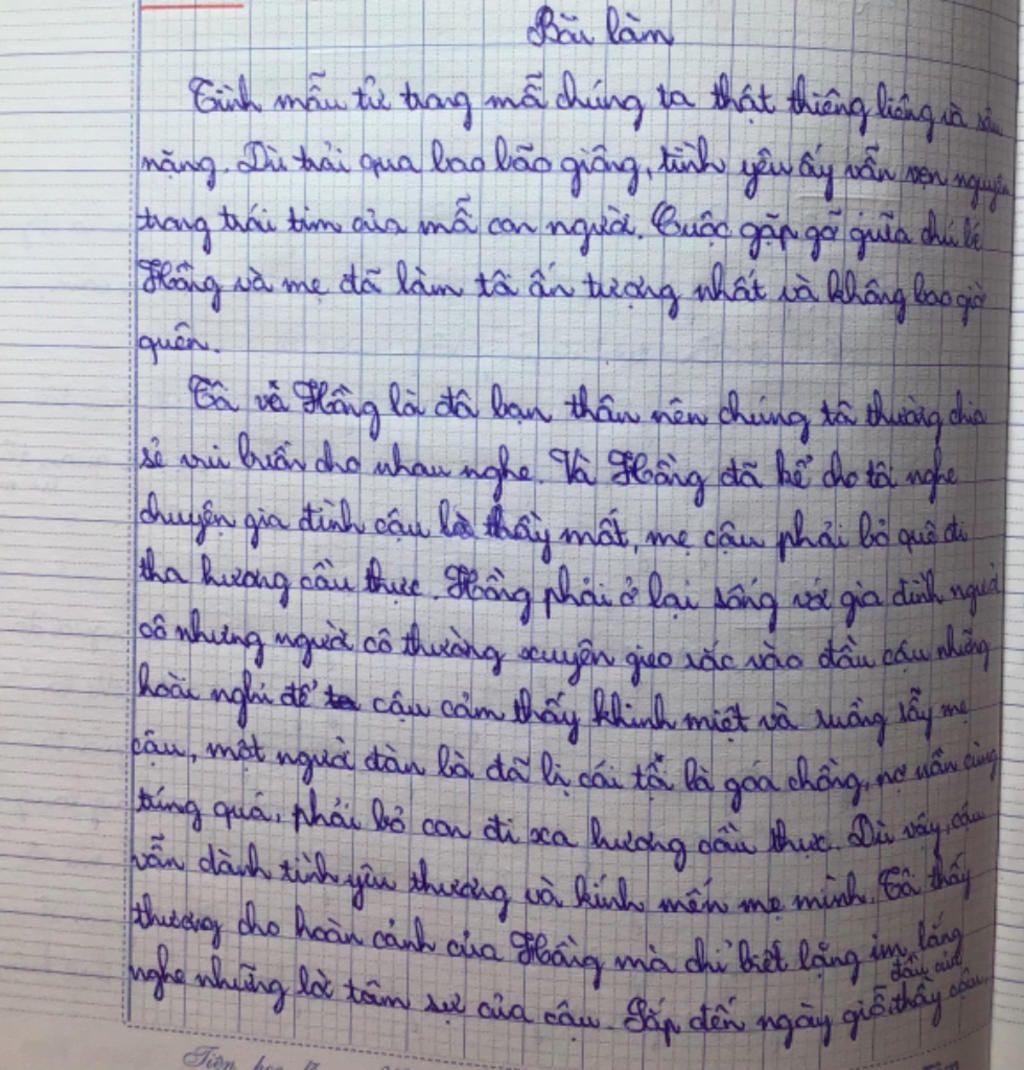 Bài làm
Tình mẫu tử trong mỗi chúng ta thật thiêng liêng và sâu
nặng. Dù trải qua bao bão giông, tình yêu ấy vẫn vẹn nguyên
trong trái tim của mỗi con người. Cuộc gặp gỡ giữa chú bé
Hồng và mẹ đã làm tôi ấn tượng nhất và không bao giờ
quên.
Tôi và Hồng là đôi bạn thân nên chúng tôi thường chia
sẻ vui buồn cho nhau nghe. Và Hồng đã kể cho tôi nghe
chuyện gia đình cậu là thầy mất, mẹ cậu phải bỏ quê đi
tha hương cầu thực. Hồng phải ở lại sống với gia đình người
cô nhưng người cô thường xuyên gieo rắc vào đầu cậu những
hoài nghi để cậu cảm thấy khinh miệt và ruồng rẫy mẹ
cậu, một người đàn bà đã bị cái tội là góa chồng, nợ nần cùng
túng quá, phải bỏ con đi xa hương cầu thực. Dù vậy, cậu
vẫn dành tình yêu thương và kính mến mẹ mình. Tôi thấy
thương cho hoàn cảnh của Hồng mà chỉ biết lặng im, lắng
nghe những lời tâm sự của cậu. Sắp đến ngày giỗ đầu của thầy cậu,